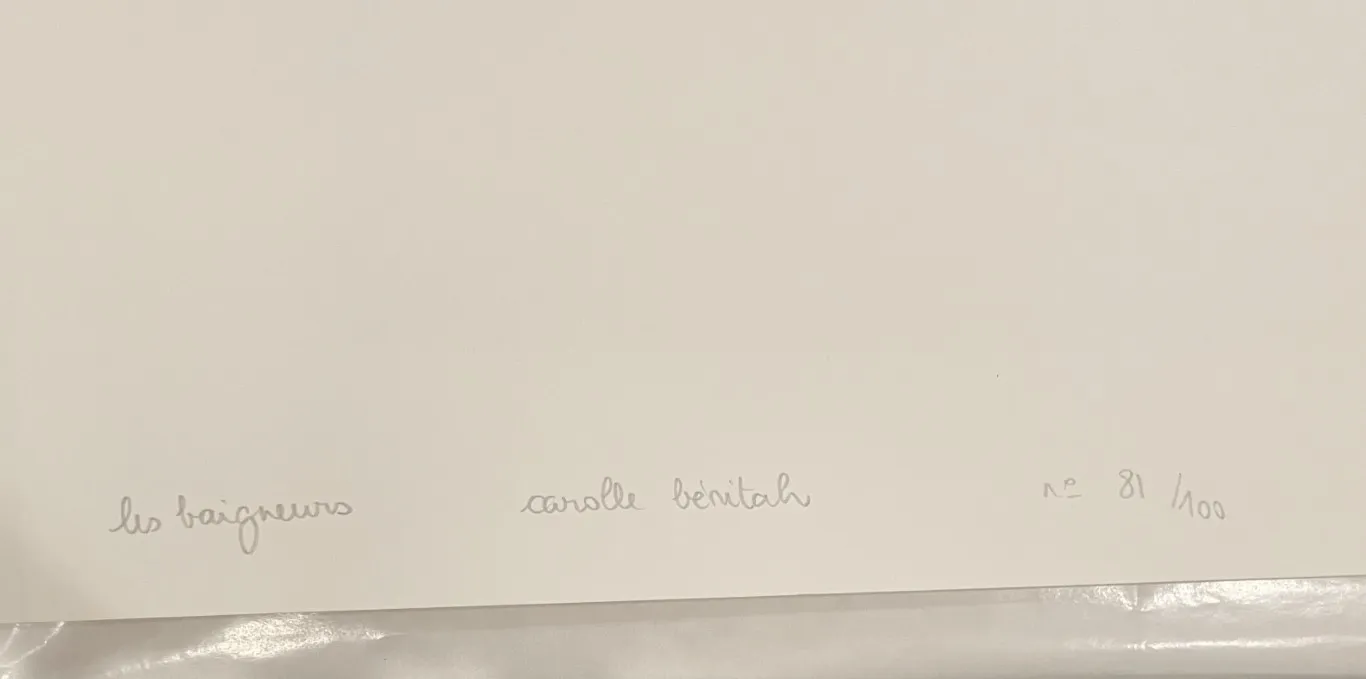 les baigneurs carolle bénitah nº 81/100